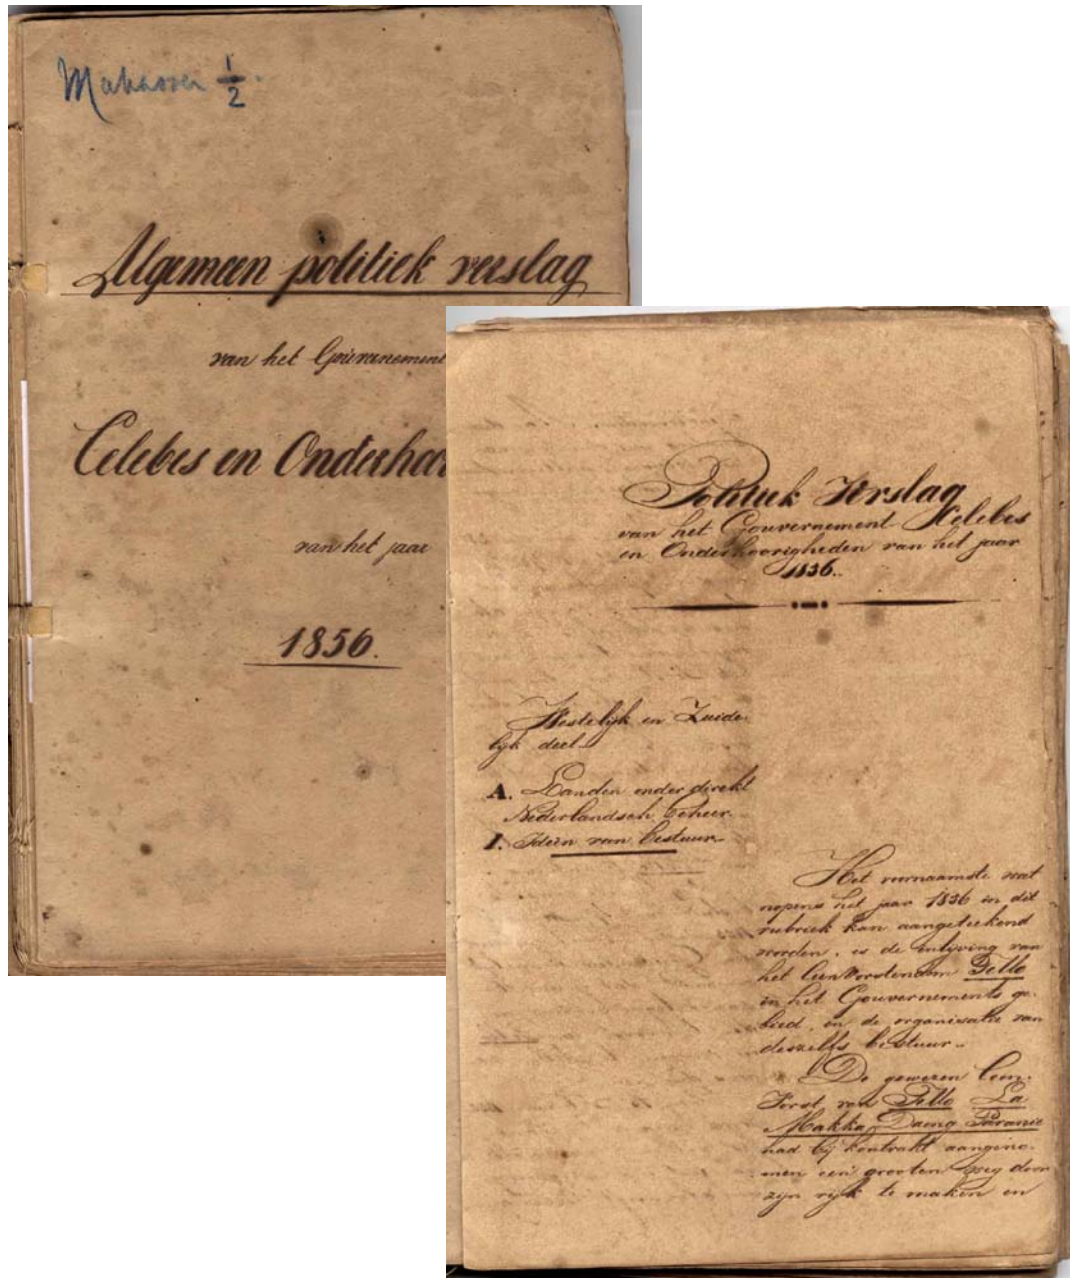 Makassar 1/2.
Algemeen politiek verslag
van het Gouvernement
Celebes en Onderhoo
van het jaar
1856.
Politiek Verslag
van het Gouvernement Celebes
en Onderhoorigheden van het jaar
1856.
Westelijk en Zuide-
lijk deel.
A. Landen onder direkt
Nederlandsch beheer.
I. Ideën van bestuur.
Het voornaamste wat
nopens het jaar 1856 in dit
rubriek kan aangeteekend
worden, is de inlijving van
het Leenvorstendom Tello
in het Gouvernements ge-
bied, en de organisatie van
deszelfs bestuur.
De gewezen Leen-
Vorst van Tello La
Makka Daeng Paranie
had bij kontrakt aangeno-
men een grooten weg door
zijn rijk te maken en